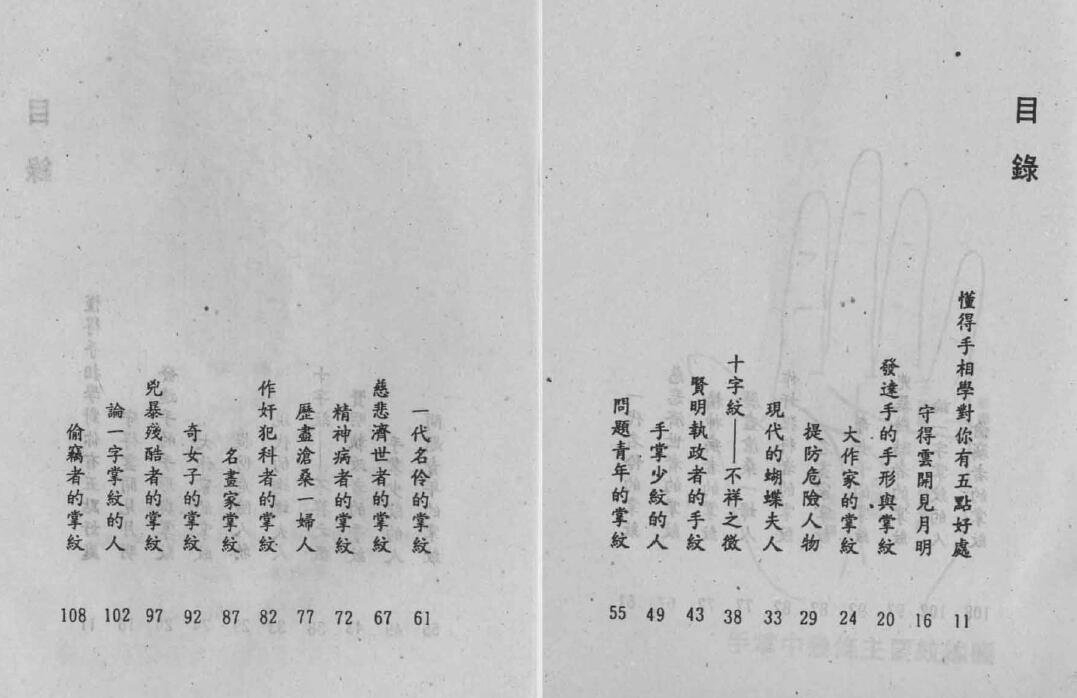 目錄
懂得手相學對你有五點好處 11
守得雲開見月明 16
發達手的手形與掌紋 20
大作家的掌紋 24
提防危險人物 29
現代的蝴蝶夫人 33
十字紋——不祥之徵 38
賢明執政者的手紋 43
手掌少紋的人 49
問題青年的掌紋 55
一代名伶的掌紋 61
慈悲濟世者的掌紋 67
精神病者的掌紋 72
歷盡滄桑一婦人 77
作奸犯科者的掌紋 82
名畫家掌紋 87
奇女子的掌紋 92
兇暴殘酷者的掌紋 97
論一字掌紋的人 102
偷竊者的掌紋 108